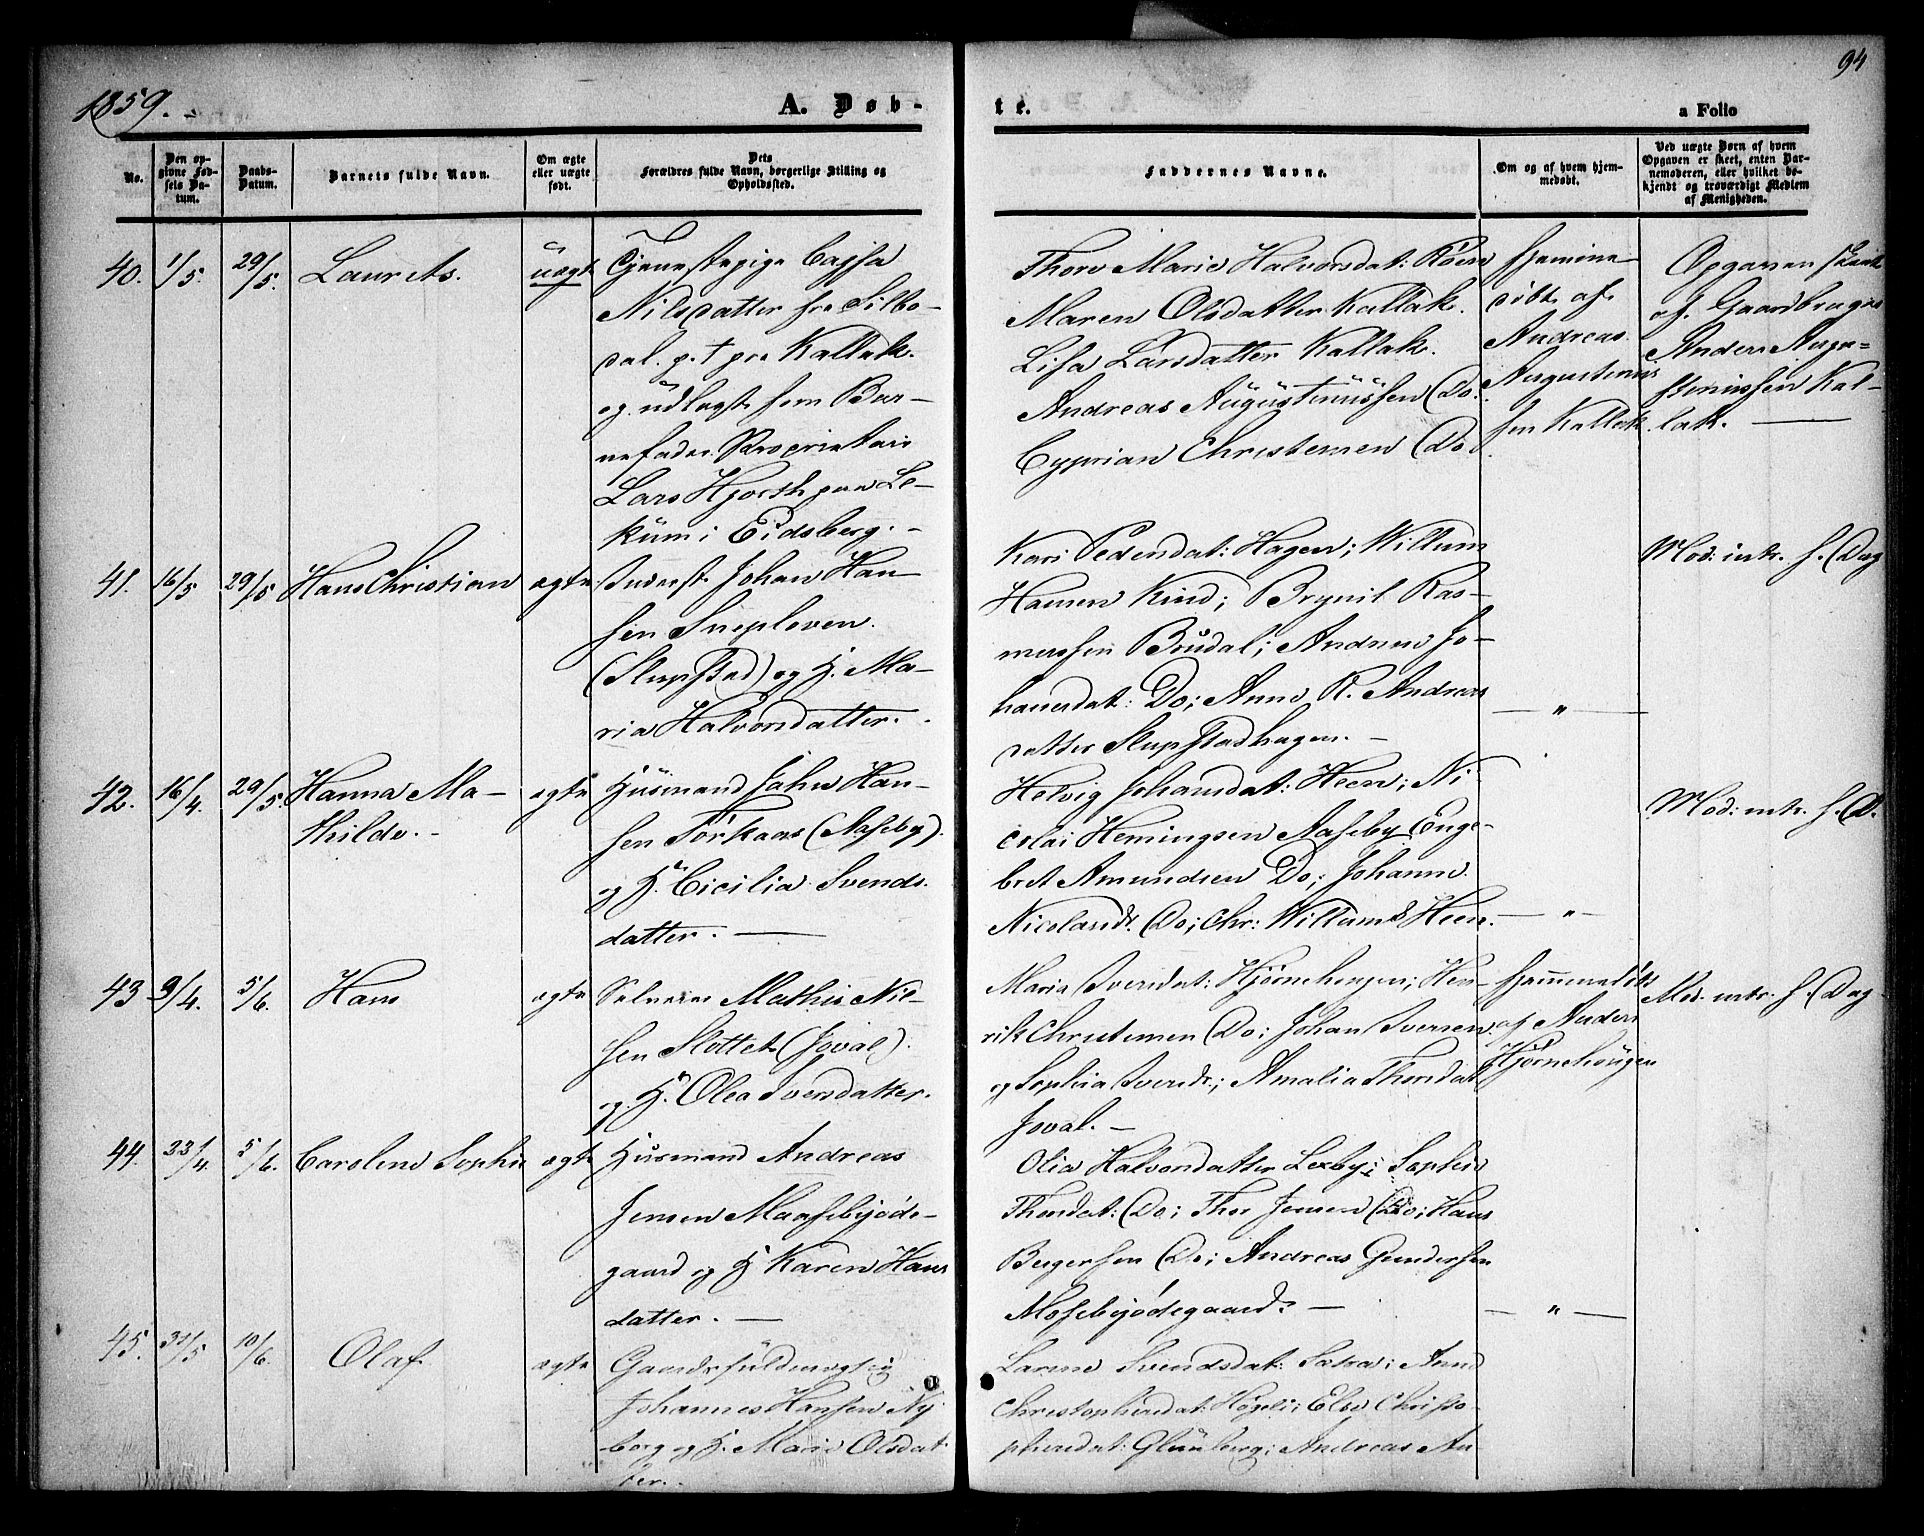 94
1859.
A. Døb-
te.
a Folio
No.
Den op-
givne Fød-
sels Da-
tum.
Daabs-
Datum.
Barnets fulde Navn.
Om ægte
eller uægte
født.
Dets
Forældres fulde Navn, borgerlige Stilling og
Opholdssted.
Faddernes Navne.
Om og af hvem hjem-
medøbt.
Ved uægte Børn af hvem
Opgaven er skeet, enten Bar-
nemoderen, eller hvilket be-
kjendt og troværdigt Medlem
af Menigheden.
40.
1/5.
29/5.
Laurits.
uægt
Tjenestepige Cajsa
Nilsdatter fra Silbo-
dal. p. t. paa Kallak.
og udlagt som Bar-
nefader Proprietair
Lars Hjorth paa Le-
kum i Eidsberg. -
Thore Marie Halvorsdat:
Maren Olsdatter Kallak.
Lisa Larsdatter Kallak.
Andreas Augustinussen Do.
Cyprian Christensen Do
hjemme-
døbt af
Andreas
Augustinus
sen Kallak.
Opgaven skeet
af Gaardbruger
Anders Augu=
stinussen Kal-
lak. -
41.
16/5
29/5
Hans Christian
ægte
Inderst Johan Han-
sen Sneploven.
(Slupstad) og H. Ma-
ria Halvorsdatter. -
Kari Pedersdat: Hagen; Willum
Hansen Kind; Brynil Ras-
mussen Brudal; Andrea Jo-
hansdat: Do; Anne R. Andreas
datter Slupstadhagen. -
- " -
Mod: intr. s. Dag
42.
16/4.
29/5.
Hanna Ma-
thilde. -
ægte
Husmand John Han-
sen Torkaas (Aaseby).
og H. Cicilia Svends.
datter. -
Helvig Johansdat: Heen; Ni-
colai Hemingsen Aaseby, Enge-
bret Amundsen Do; Johanne
Nicolaisdt. Do; Chr: Willums. Heen.
- " -
Mod: intr. s. D.
43
9/4.
5/6.
Hans
ægte
Selveier Mathis Nil-
sen Slottet (Joval).
og H. Olea Iversdatter.
Maria Iversdat: Hjørnehougen; Hen-
rik Christensen Do; Johan Iversen
og Sophia Iversdt.; Amalia Thorsdat
Joval. -
hjemmedøbt
af Anders
Hjørnehougen
Mod. intr. s. Dag
44.
23/4
5/6.
Caroline Sophie
ægte
Husmand Andreas
Jensen Maasebyøde-
gaard og H Karen Hans
datter. -
Olia Halvorsdatter Lexby; Sophie
Thorsdat: Do; Thor Jensen Do; Hans
Bergersen Do; Andreas Gundersen
Mosebyødegaard. -
- " -
45.
31/5
10/6.
Olaf
ægte
Gaardsfuldmægtig
Johannes Hansen Ny-
borg og H. Marie Olsdat-
ter. -
Larine Svendsdat: ; Anne
Christophersdat: Høgeli; Else Christo-
phersdat: ; Andreas An